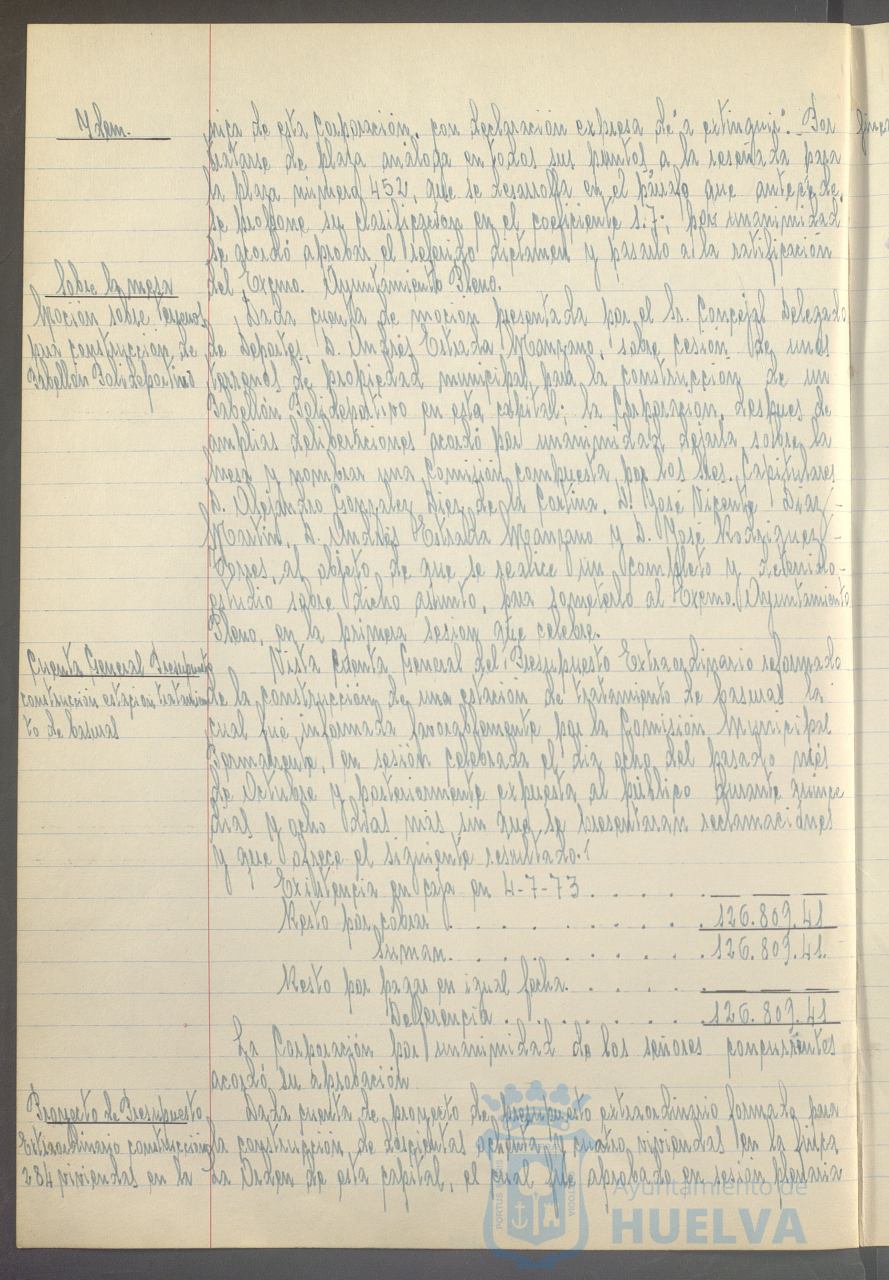 Idem.
nica de esta Corporación, con declaración expresa de "a extinguir". Por
tratarse de plaza análoga en todos sus puntos a la reseñada para
la plaza número 452, que se desarrolla en el párrafo que antecede,
se propone su clasificación en el coeficiente 1.7; por unanimidad
se acordó aprobar el referido dictamen y pasarlo a la ratificación
del Excmo. Ayuntamiento Pleno.
Sobre la mesa
Moción sobre terrenos
para construcción de
Pabellón Polideportivo
Dada cuenta de moción presentada por el Sr. Concejal Delegado
de Deportes, D. Andrés Estrada Manzano, sobre cesión de unos
terrenos de propiedad municipal para la construcción de un
Pabellón Polideportivo en esta capital; la Corporación, después de
amplias deliberaciones acordó por unanimidad dejarla sobre la
mesa y nombrar una Comisión compuesta por los Sres. Capitulares
D. Alejandro González Diez de la Cortina, D. José Vicente Díaz
Martín, D. Andrés Estrada Manzano y D. José Rodríguez
al objeto de que se realice un completo y detenido
estudio sobre dicho asunto, para someterlo al Excmo. Ayuntamiento
Pleno, en la primera sesión que celebre.
Cuenta General Presupuesto
construcción estación tratamien
to de basuras
Vista cuenta General del Presupuesto Extraordinario reformado
de la construcción de una estación de tratamiento de basuras la
cual fué informada favorablemente por la Comisión Municipal
Permanente, en sesión celebrada el día ocho del pasado més
de Octubre y posteriormente expuesta al público durante quince
días y ocho días más sin que se presentaran reclamaciones
y que ofrece el siguiente resultado:
Existencia en caja en 4-7-73 . . . . . . — — —
Resto por cobrar . . . . . . . . . 126.809.41
Suman . . . . . . . . 126.809.41.
Resto por pagar en igual fecha. . . . . — — —
Diferencia . . . . . . . . 126.809.41
La Corporación por unanimidad de los señores concurrentes
acordó su aprobación
Proyecto de Presupuesto
Extraordinario construcción
284 viviendas en la
Dada cuenta de proyecto de presupuesto extraordinario formado para
la construcción de doscientas ochenta y cuatro viviendas en la finca
La Orden de esta capital, el cual fue aprobado en sesión plenaria
PORTUS
Ayuntamiento de
HUELVA